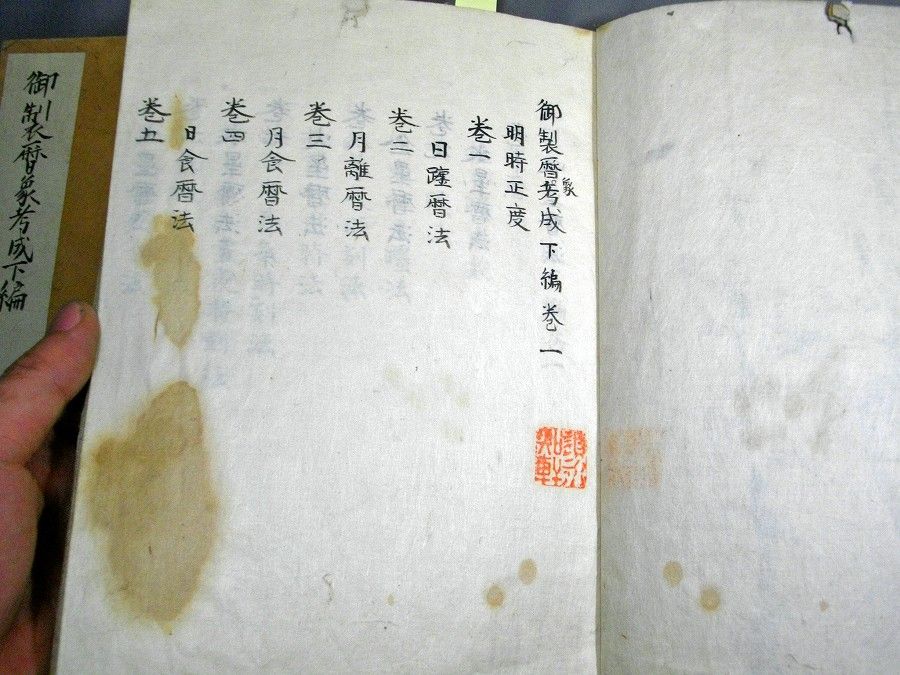 御製暦象考成下編巻一
明時正度
巻一
日躔暦法
巻二
月離暦法
巻三
月食暦法
巻四
日食暦法
巻五
御製暦象考成下編